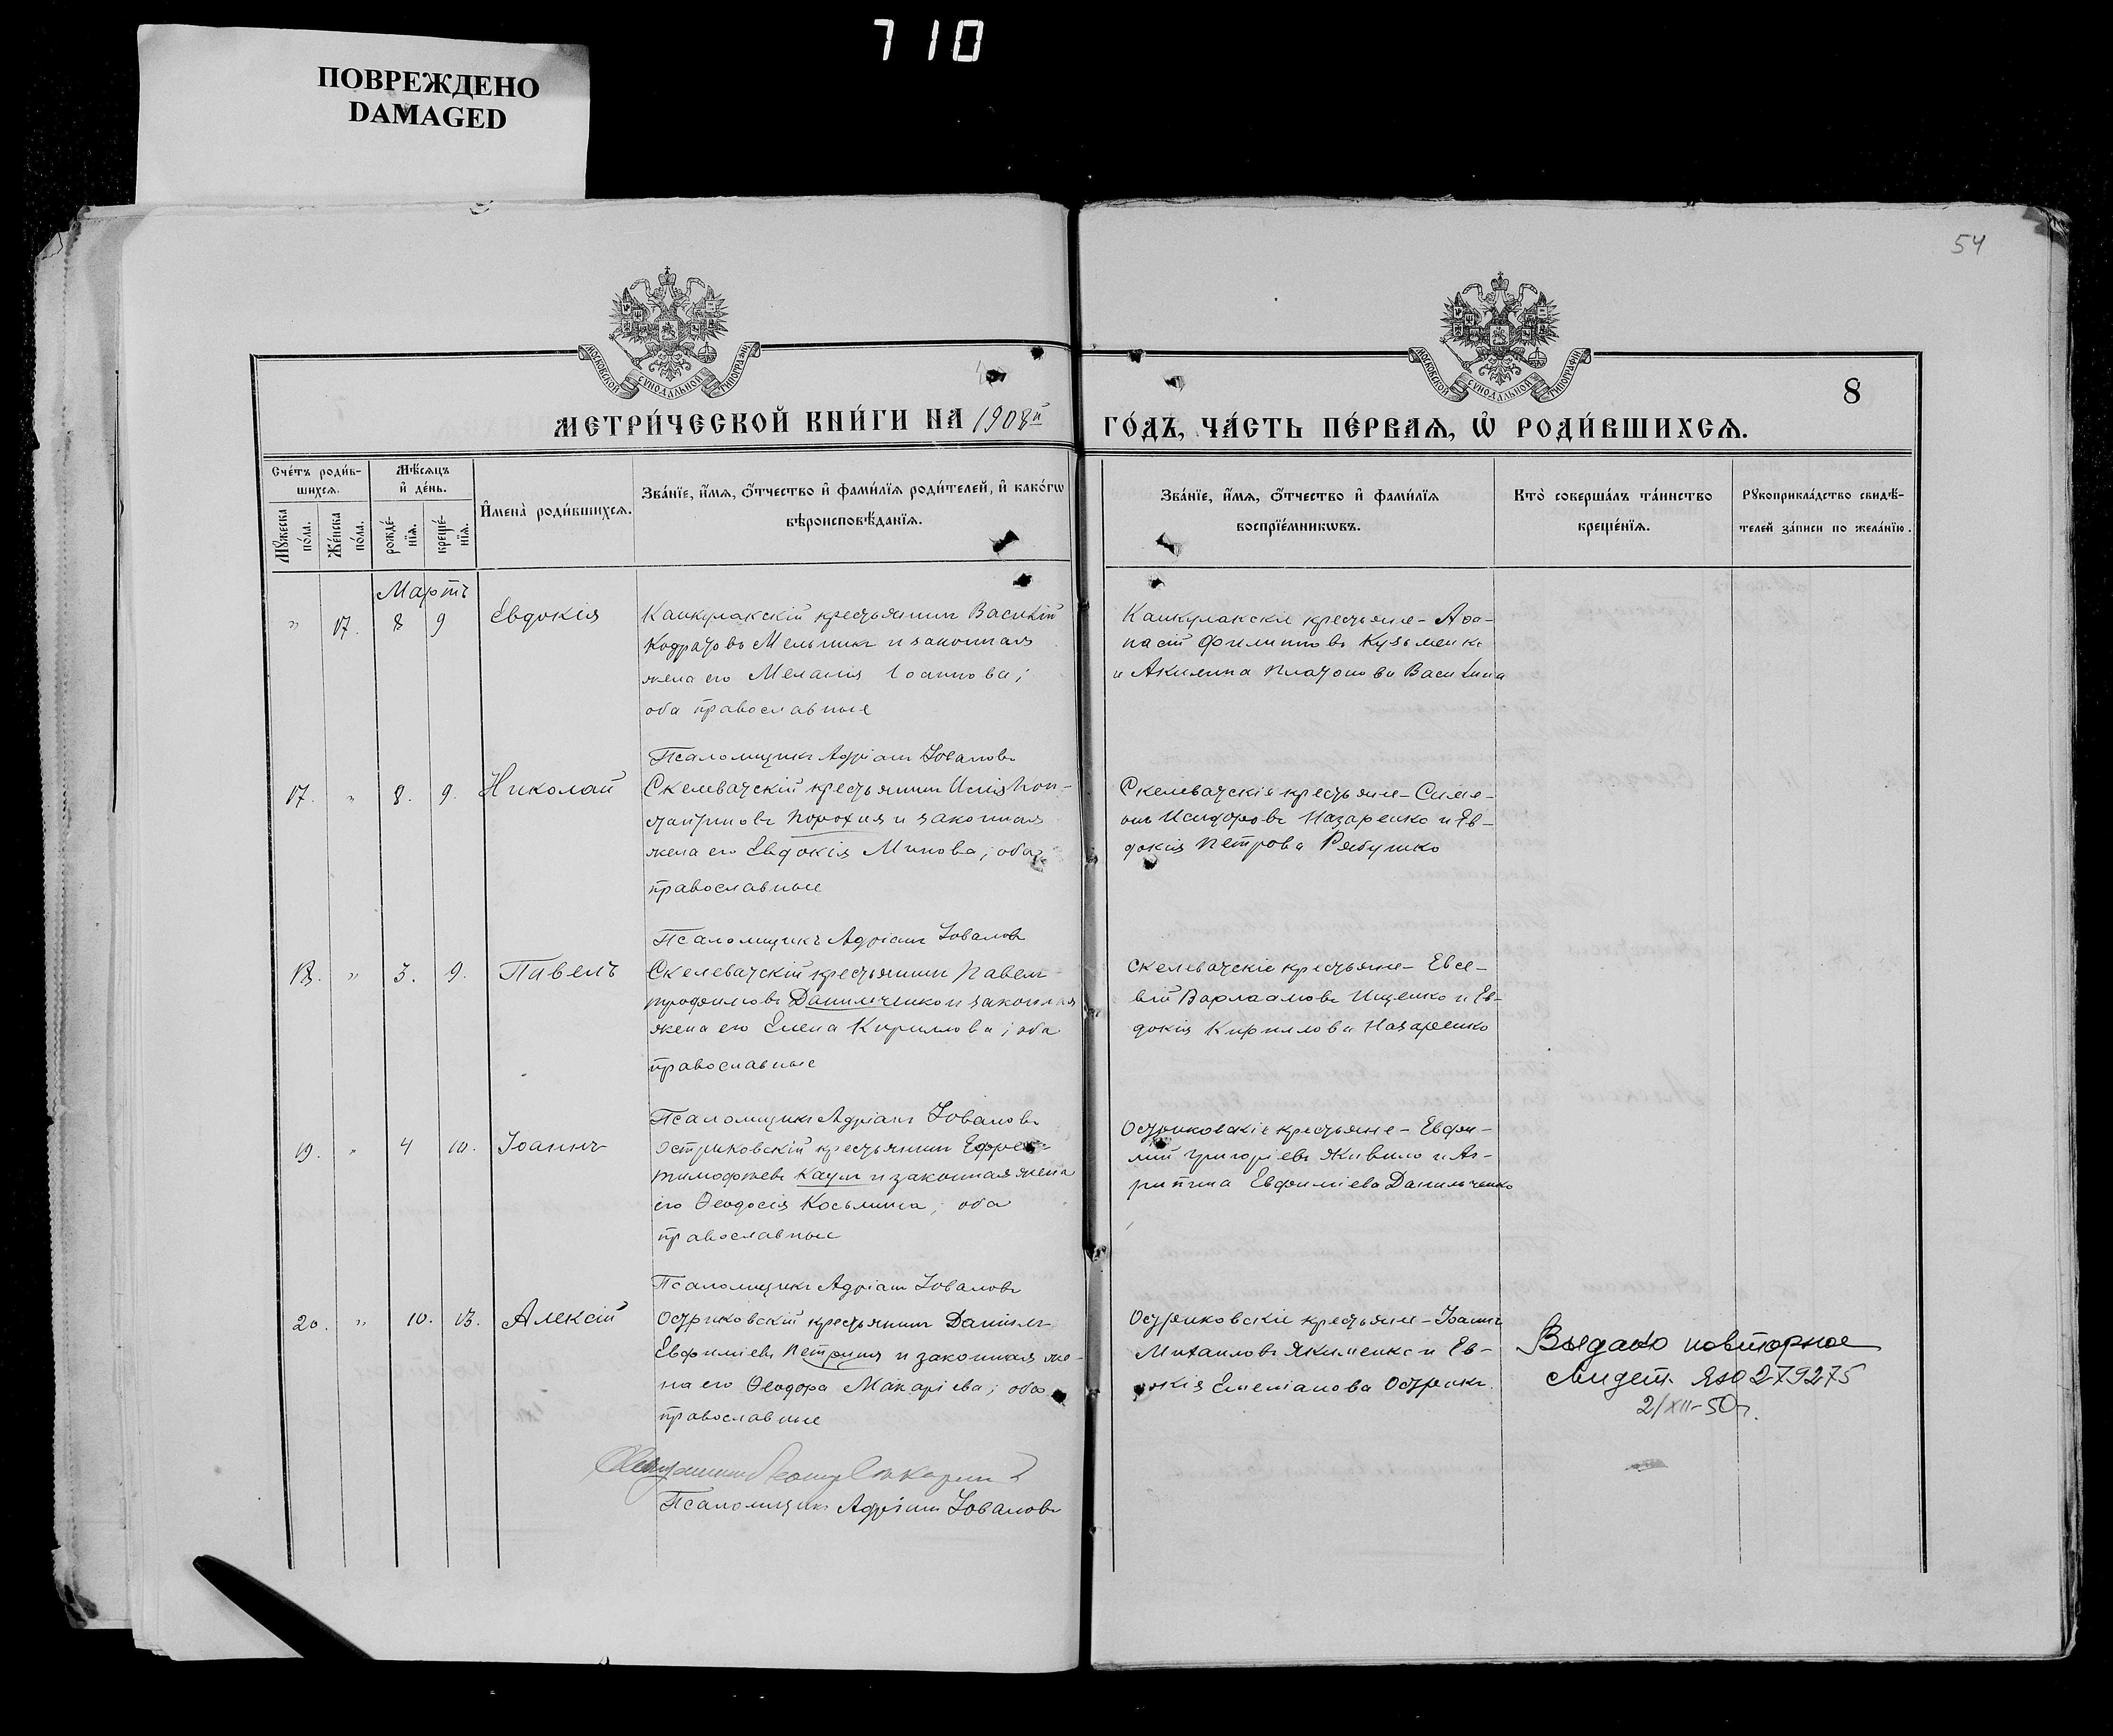 710
ПОВРЕЖДЕНО
DAMAGED
54
МОСКОВСКОЙ СѴНОДАЛЬНОЙ ТИПОГРАФІИ
МОСКОВСКОЙ СѴНОДАЛЬНОЙ ТИПОГРАФІИ
8
МЕТРИ́ЧЕСКОЙ КНИ́ГИ НА 1908й
ГО́ДЪ, ЧА́СТЬ ПЕ́РВАѦ, Ѡ҆ РОДИ́ВШИХСѦ.
Сче́тъ роди́в-
шихсѧ.
Мꙋ́жеска
по́ла.
Же́нска
по́ла.
Мѣ́сѧцъ
и҆ де́нь.
рожде́-
нїѧ.
креще́-
нїѧ.
И҆мена̀ роди́вшихсѧ.
Зва́нїе, и҆́мѧ, ѻ҆́тчество и҆ фами́лїѧ роди́телей, и҆ како́гѡ
вѣроисповѣ́данїѧ.
Зва́нїе, и҆́мѧ, ѻ҆́тчество и҆ фами́лїѧ
воспрїе́мникѡвъ.
Кто̀ соверша́лъ та́инство
креще́нїѧ.
Рꙋкоприкла́дство свидѣ́-
телей за́писи по жела́нїю.
Мартъ
" 17. 8 9 Евдокія
Канкулакскій крестьянинъ Василій
Кодратовъ Мельникъ и законная
жена его Меланія Іоаннова;
оба православные
Канкулакскіе крестьяне - Аѳа-
насій Филипповъ Кузьменко
и Акилина Платонова
Псаломщикъ Адріанъ
17. " 8. 9. Николай
Скелеватскій крестьянинъ
Порохня и законная
жена его Евдокія Минова; оба
православные
Скелеватскіе крестьяне - Симе-
онъ Исидоровъ Назаренко и Ев-
докія Петрова Рябушко
Псаломщикъ Адріанъ
18. " 3. 9. Павелъ
Скелеватскій крестьянинъ Павелъ
Трофимовъ Данильченко и законная
жена его Елена Кириллова; оба
православные
Скелеватскіе крестьяне - Евсе-
вій Варлаамовъ Ищенко и Ев-
докія Кириллова Назаренко
Псаломщикъ Адріанъ
19. " 4 10. Іоаннъ
Остриковскій крестьянинъ Ефремъ
Тимофѣевъ Каун и законная жена
его Ѳеодосія Косьмина; оба
православные
Остриковскіе крестьяне - Евфи-
мій Григоріевъ Живило и Аг-
рипина Евфиміева Данильченко
Псаломщикъ Адріанъ
20. " 10. 13. Алексій
Остриковскій крестьянинъ Даніилъ
Евфиміевъ и законная же-
на его Ѳеодора Макаріева; оба
православные
Остриковскіе крестьяне - Іоаннъ
Михаиловъ Якименко и Ев-
докія Емеліанова Острикъ.
Выдано повторное
свидет. 279275
2/XII-50г.
Псаломщикъ Адріанъ